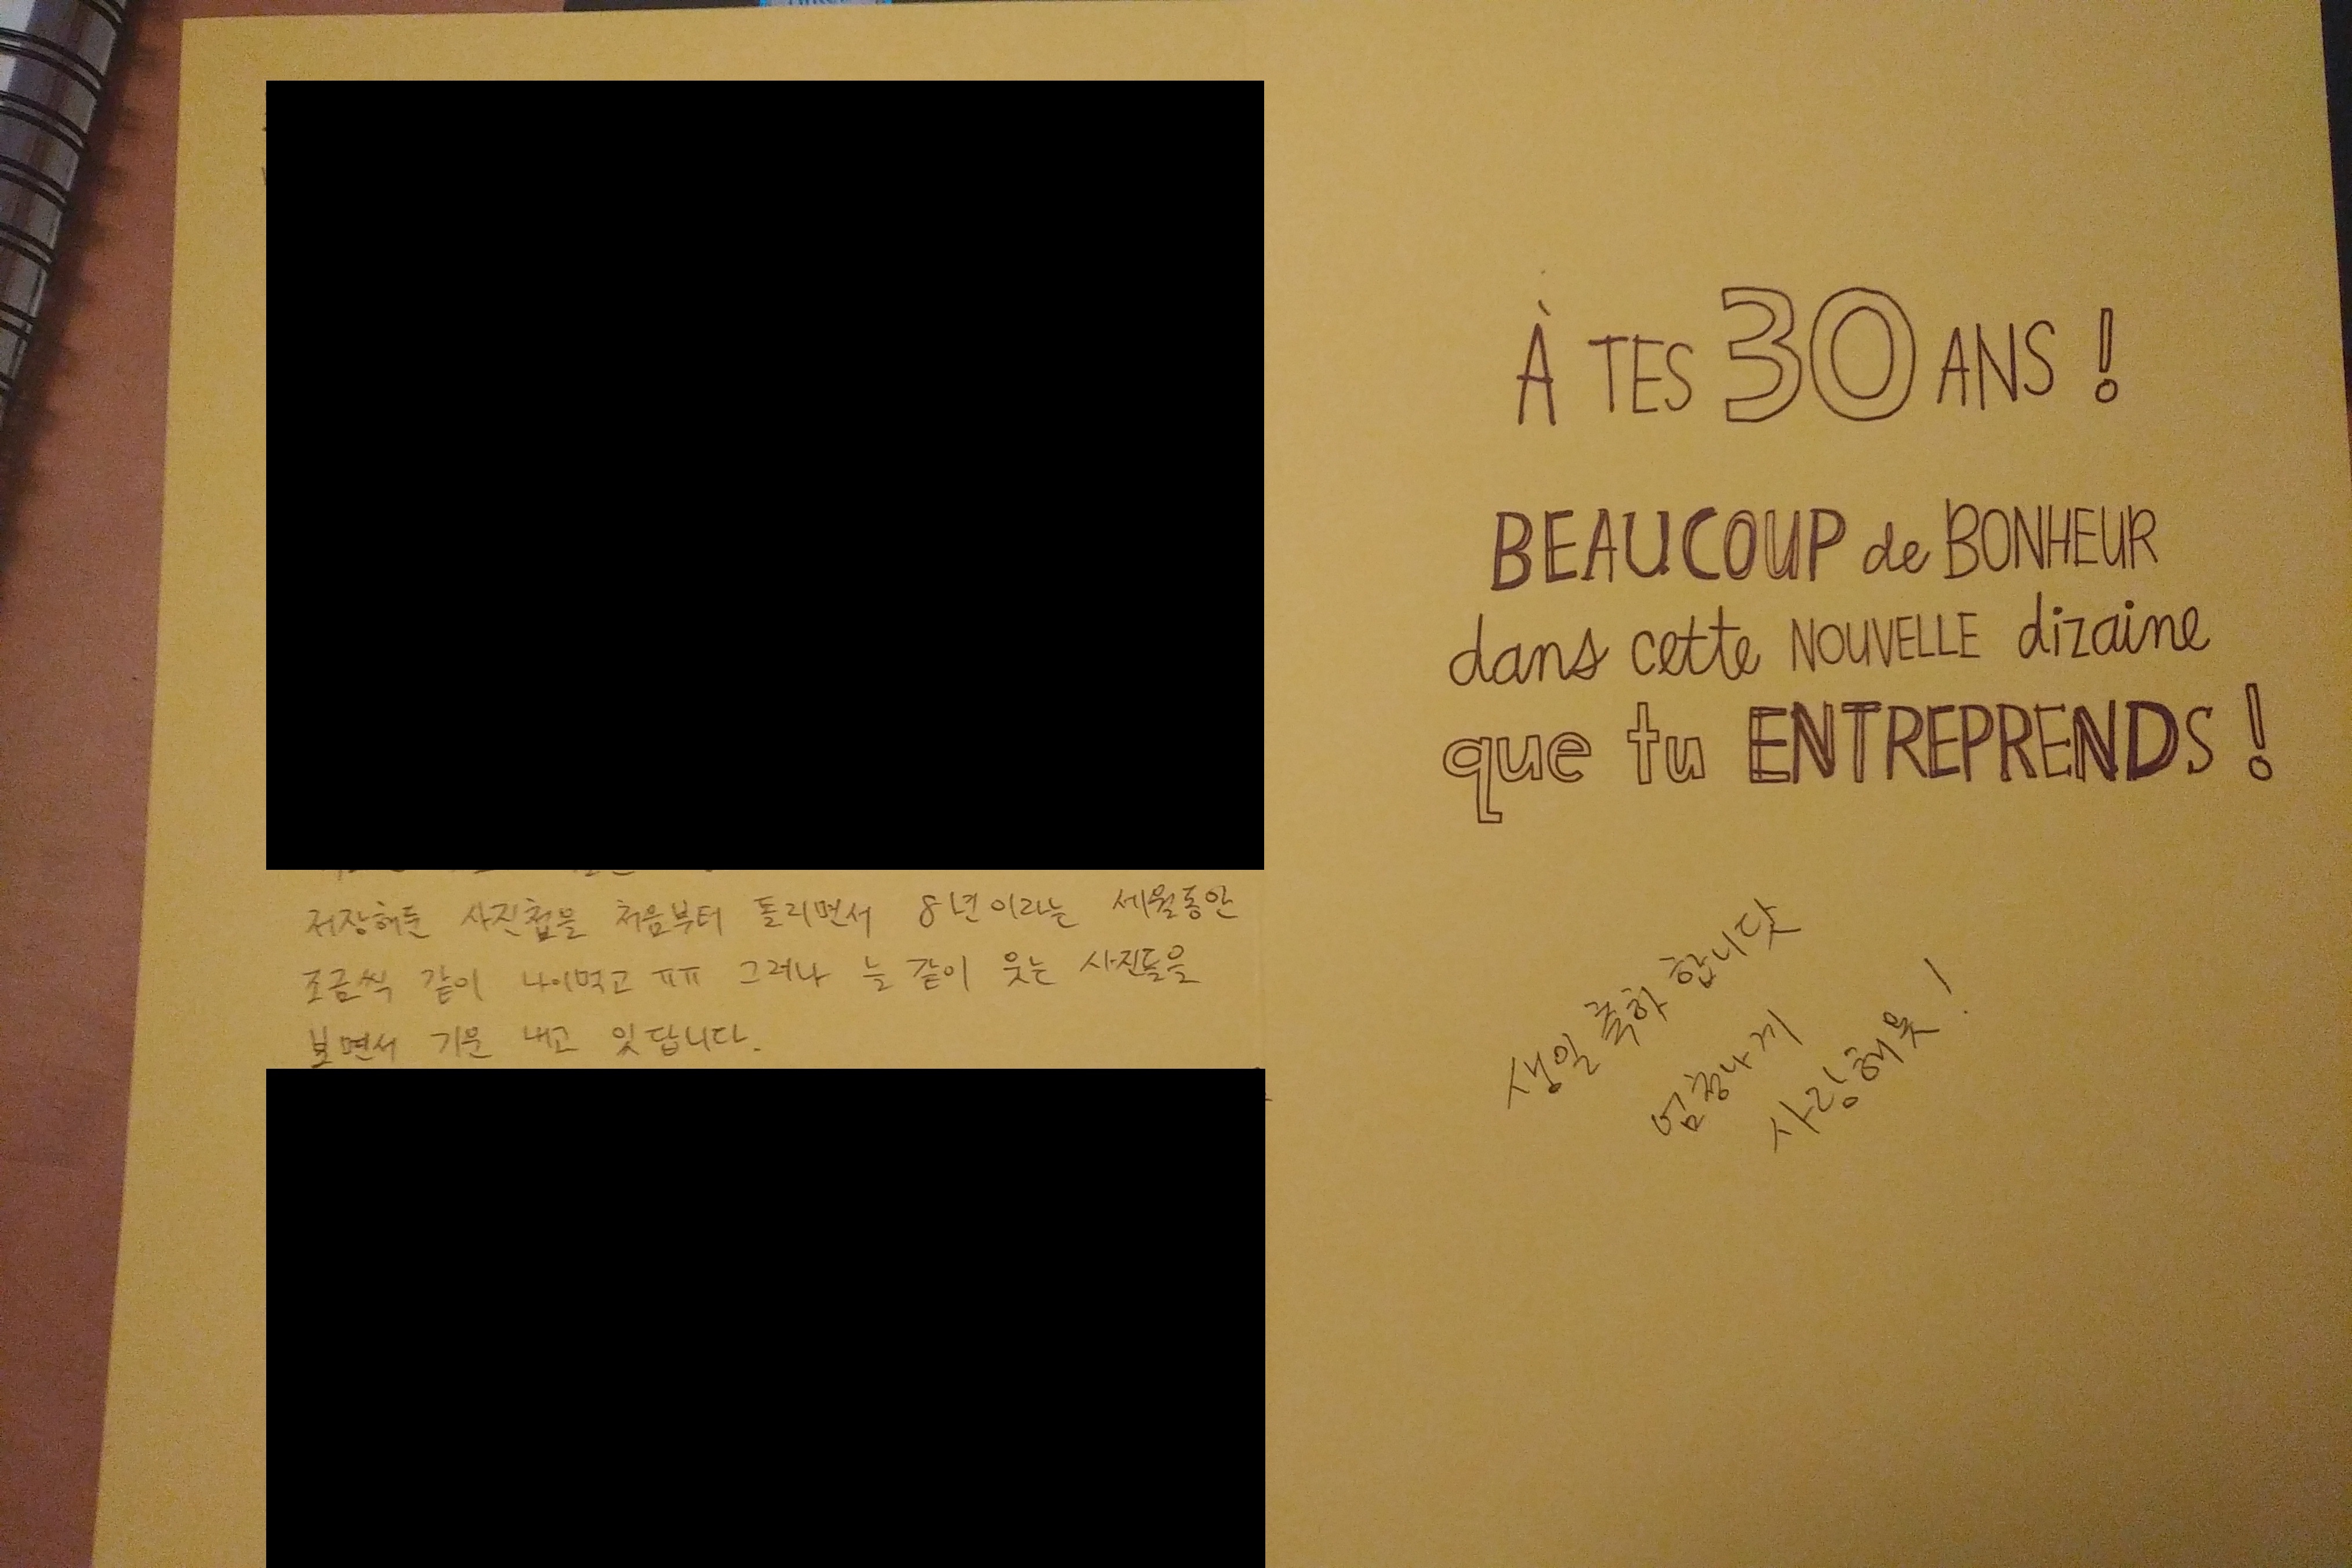 저장해둔 사진첩을 처음부터 돌리면서 8년이라는 세월동안
조금씩 같이 나이먹고 ㅠㅠ 그러나 늘 같이 웃는 사진들을
보면서 기운 내고 있답니다.
À TES 30 ANS !
BEAUCOUP de BONHEUR
dans cette NOUVELLE dizaine
que tu ENTREPRENDS !
생일 축하 합니닷
엄청나게
사랑해욧!